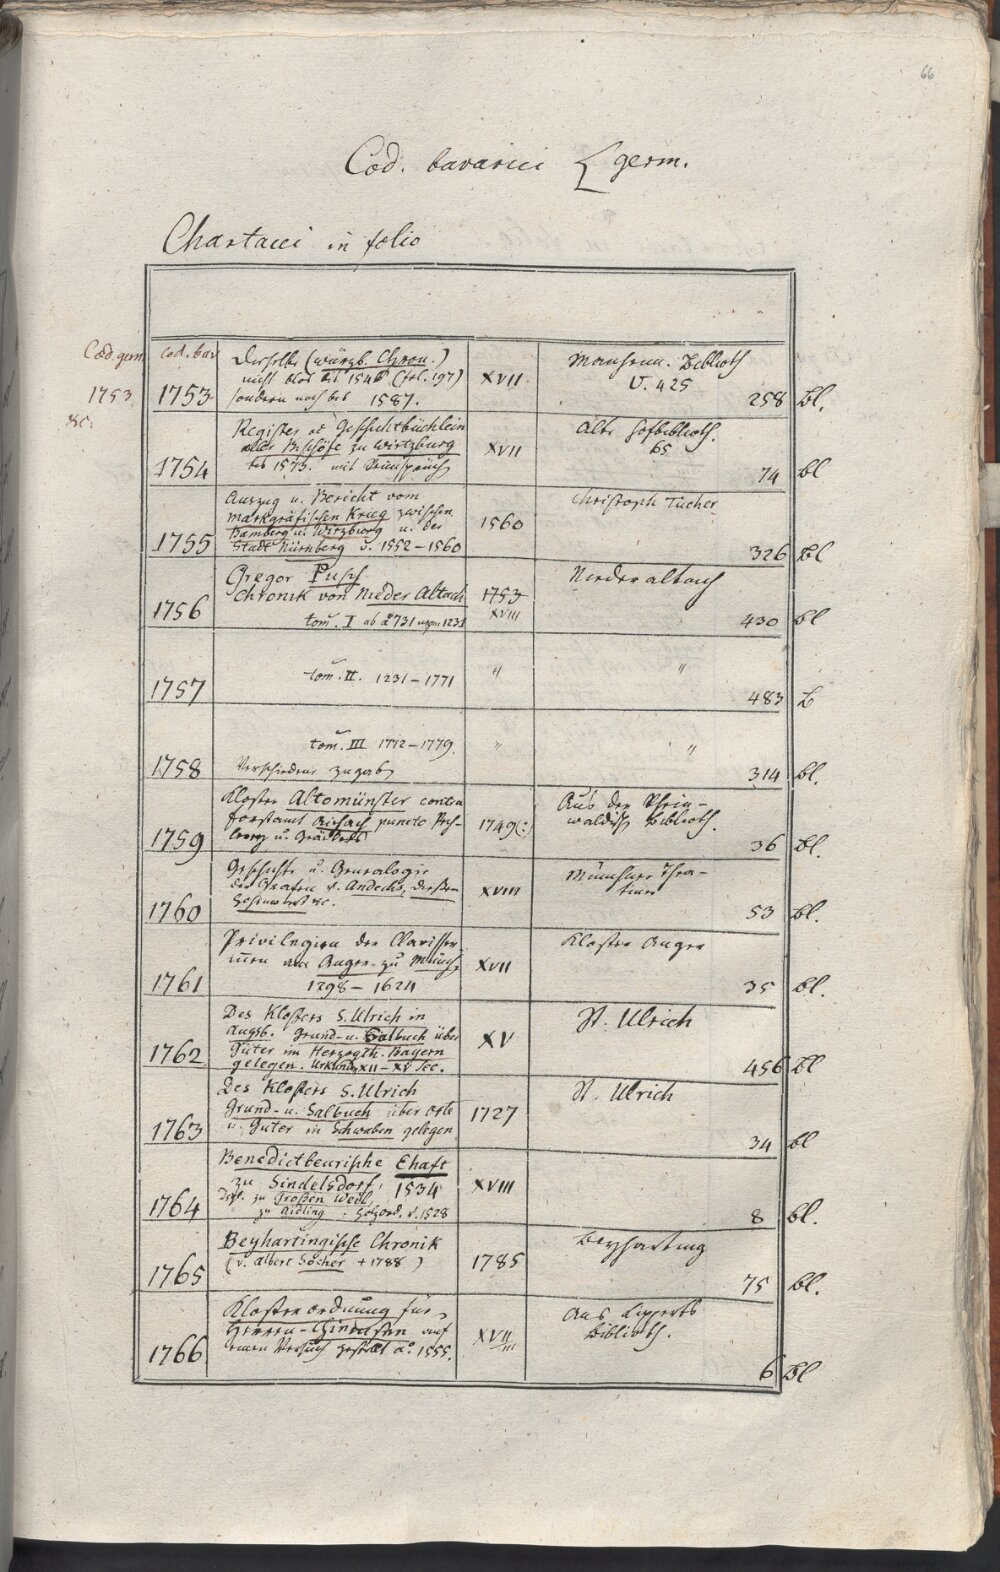 66
Cod. bavarici { germ.
Chartacei in folio
Cod. germ. cod. bav
1753 &c.
1753 Derselbe (würzb. Chron.) nicht blos bis 1546 (fol. 197) sondern noch bis 1587. XVII Manheim. Biblioth V. 425 258 Bl.
1754 Register od Geschichtbüchlein aller Bischöfe zu Wirtzburg bis 1573. mit XVII Alte Hofbiblioth. 65 74 bl
1755 Auszug u. Bericht vom
markgräfischen Krieg zwischen
Bamberg u. Wirzburg u. der
Stadt Nürnberg v. 1552–1560 1560 Christoph Tücher 326 Bl
1756 Gregor Pusch
Chronik von Nieder Altach
tom. I ab aº 731 usque 1231 1753 XVIII Niederaltaich 430 bl
1757 tom. II. 1231–1771 " " 483 b
1758 tom. III 1772–1779.
Verschiedene Zugab " " 314 bl.
1759 Kloster Altomünster contra
Forstamt Aichach puncto 1749(:) Aus der Rhein-
waldisch Biblioth. 36 Bl.
1760 Geschichte u. Genealogie
der Grafen v. Andechs, Dießen &c. XVIII Münchner Thea-
tiner 53 Bl.
1761 Privilegien der Clarisser-
innen am Anger zu Münch
1298–1624 XVII Kloster Anger 35 bl.
1762 Des Klosters S. Ulrich in
Augsb. Grund- u. Salbuch über
Güter im Herzogth. Bayern
gelegen. Urkund. XII–XV Sec. XV St. Ulrich 456 Bl
1763 Des Klosters S. Ulrich
Grund- u. Salbuch über Orte
u. Guter in Schwaben gelegen 1727 St. Ulrich 34 bl
1764 Benedictbeurische Ehaft
zu Sindelsdorf, 1534
Dsgl. zu Großen Weil,
zu Aidling. Holzord. v. 1528 XVIII 8 bl.
1765 Beyhartingische Chronik
(v. Albert Socher +1788) 1785 Beyharting 75 bl.
1766 Klosterordnung für
Herren-Chiemsee auf
einen Versuch gestellt aº. 1555. XVII/III Aus Lipperts
Biblioth. 6 Bl